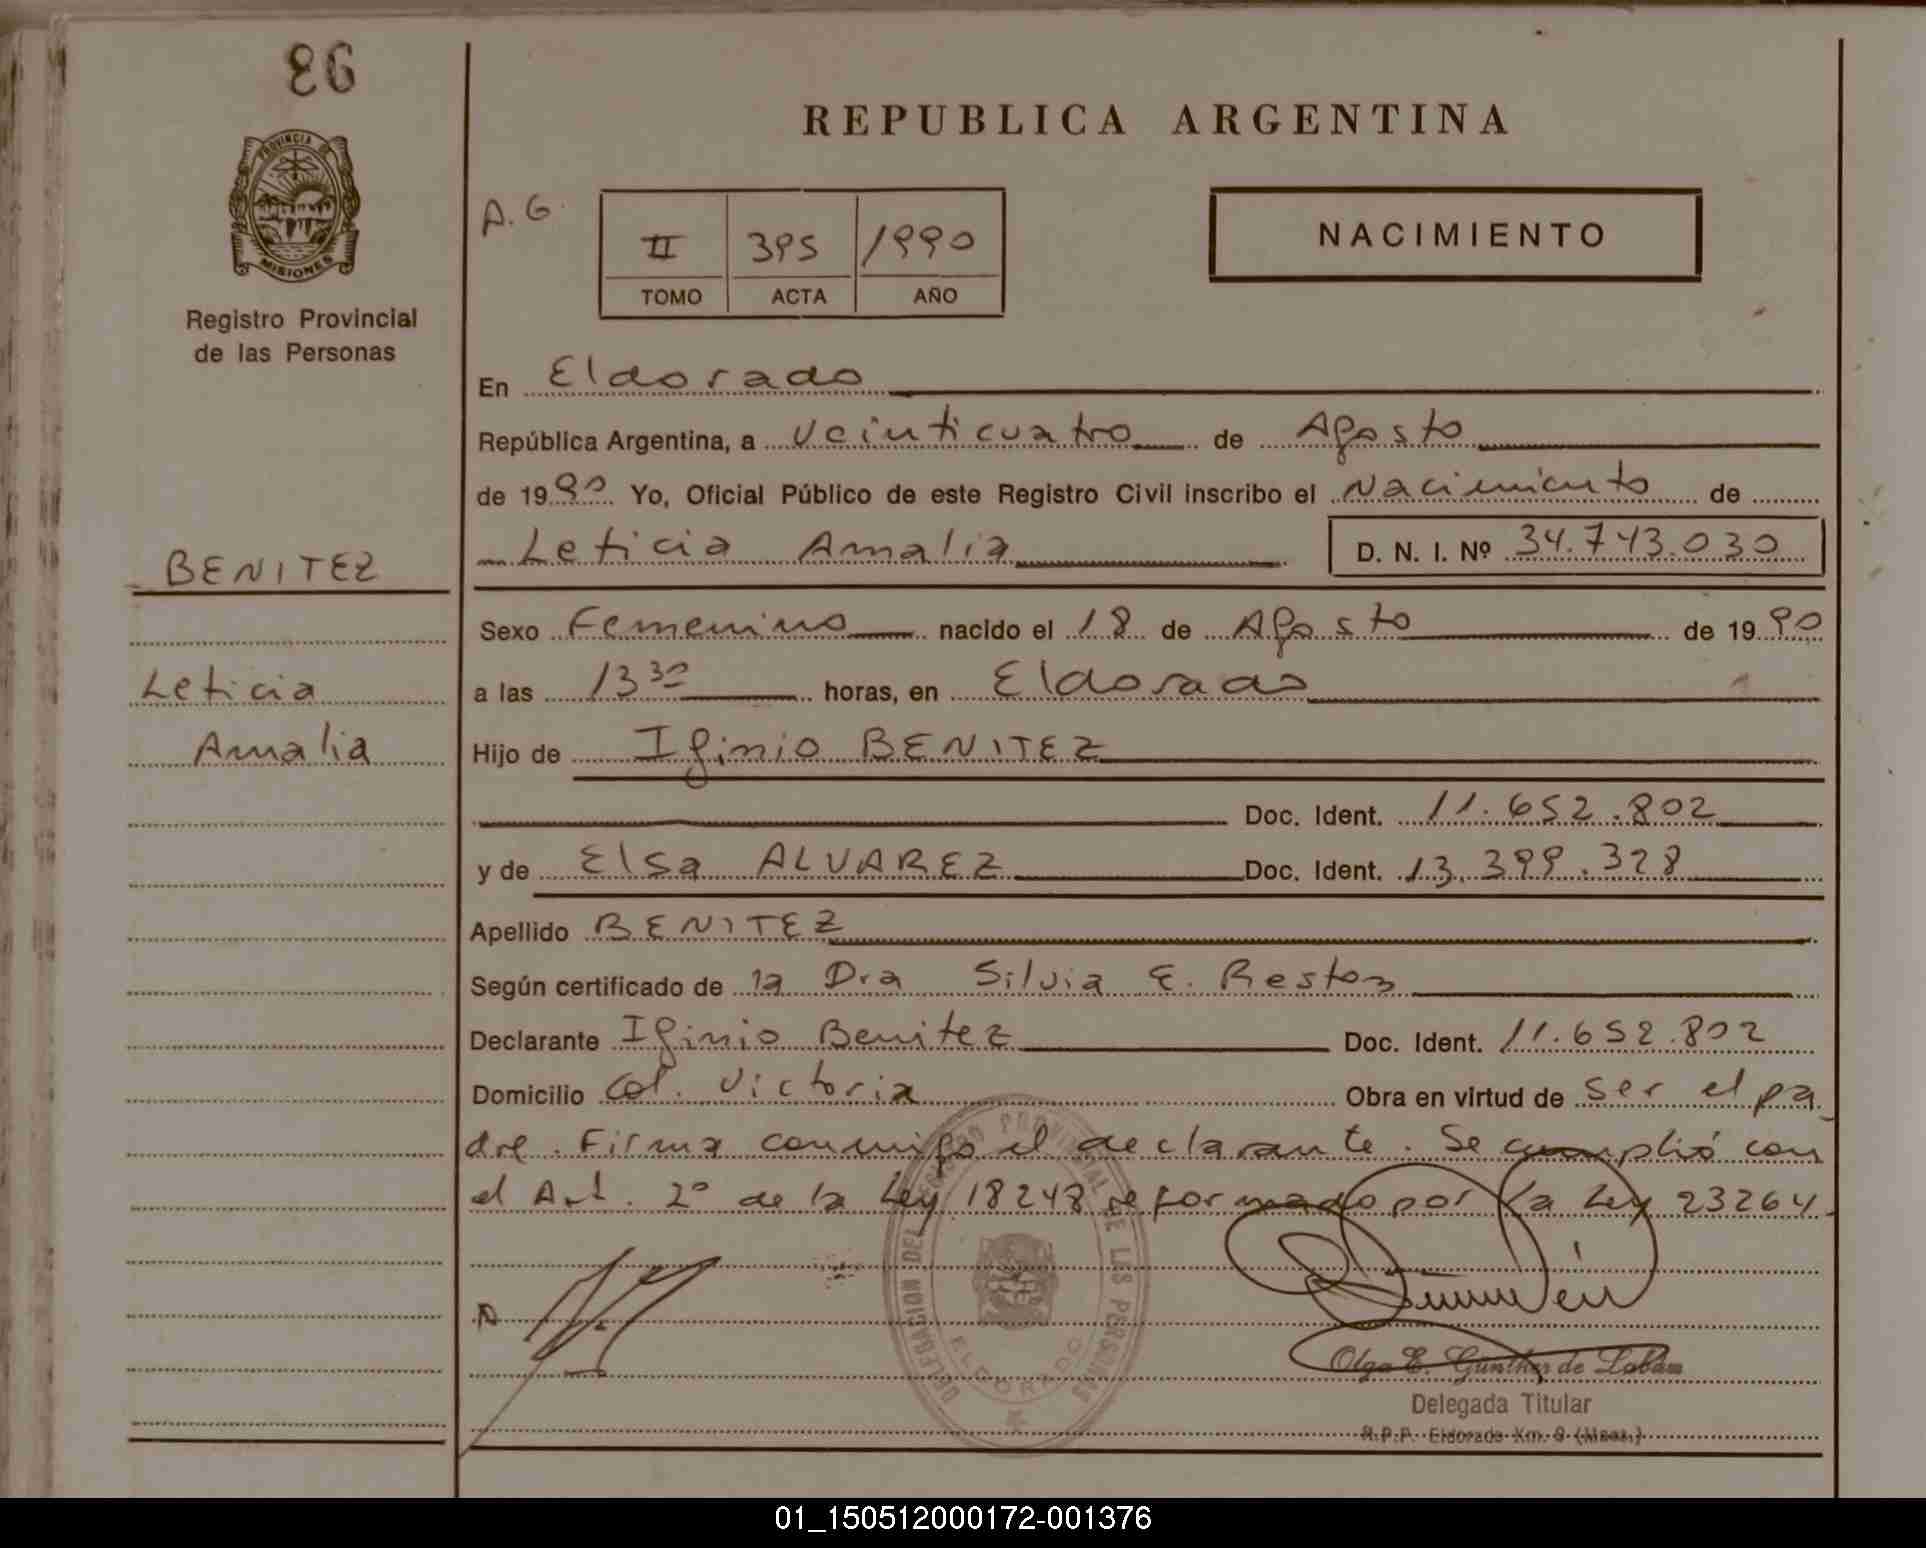 93
PROVINCIA DE
MISIONES
Registro Provincial
de las Personas
BENITEZ
Leticia
Amalia
REPUBLICA ARGENTINA
A.G.
II 395 1990
TOMO ACTA AÑO
NACIMIENTO
En Eldorado
República Argentina, a Veinticuatro de Agosto
de 1990 Yo, Oficial Público de este Registro Civil inscribo el Nacimiento de
Leticia Amalia D. N. I. Nº 34.743.030
Sexo Femenino nacido el 18 de Agosto de 1990
a las 13 30 horas, en Eldorado
Hijo de Iginio BENITEZ
Doc. Ident. 11.652.802
y de Elsa ALVAREZ Doc. Ident. 13.399.328
Apellido BENITEZ
Según certificado de la Dra Silvia E. Reston
Declarante Iginio Benitez Doc. Ident. 11.652.802
Domicilio Col. Victoria Obra en virtud de ser el pa
dre. Firma conmigo el declarante. Se cumplió con
el Art. 2º de la Ley 18248 reformado por la Ley 23264.
DELEGACION DEL REGISTRO PROVINCIAL DE LAS PERSONAS
ELDORADO
Olga E. Günther de
Delegada Titular
R.P.P. Eldorado Km. 9 (Mnes.)
01_150512000172-001376